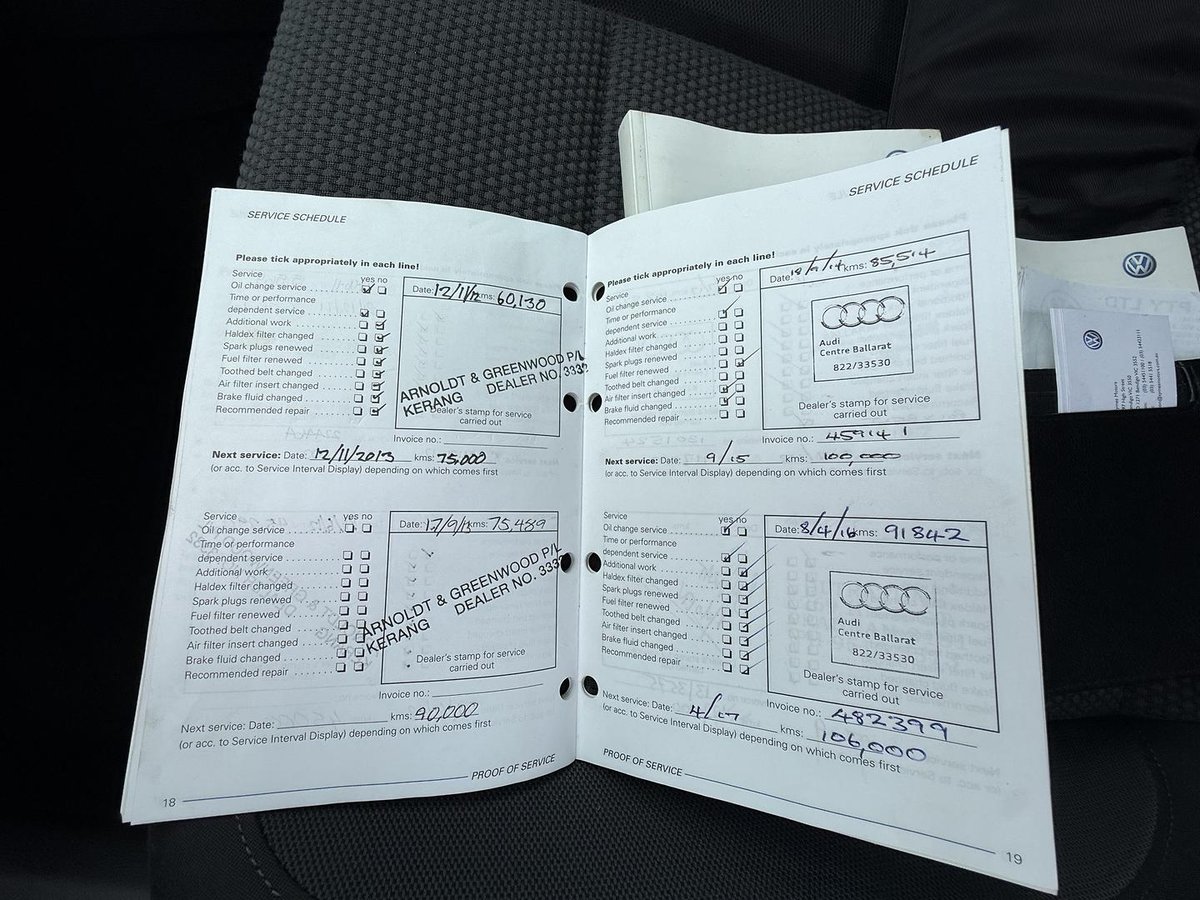 SERVICE SCHEDULE
Please tick appropriately in each line!
Service yes no
Oil change service
Time or performance
dependent service
Additional work
Haldex filter changed
Spark plugs renewed
Fuel filter renewed
Toothed belt changed
Air filter insert changed
Brake fluid changed
Recommended repair
Date: 12/11/12 kms: 60,130
ARNOLDT & GREENWOOD P/L
KERANG DEALER NO. 3332
Dealer's stamp for service
carried out
Invoice no.:
Next service: Date: 12/11/2013 kms: 75,000
(or acc. to Service Interval Display) depending on which comes first
Service yes no
Oil change service
Time or performance
dependent service
Additional work
Haldex filter changed
Spark plugs renewed
Fuel filter renewed
Toothed belt changed
Air filter insert changed
Brake fluid changed
Recommended repair
Date: 17/9/13 kms: 75,489
ARNOLDT & GREENWOOD P/L
KERANG DEALER NO. 3332
Dealer's stamp for service
carried out
Invoice no.:
Next service: Date: kms: 90,000
(or acc. to Service Interval Display) depending on which comes first
PROOF OF SERVICE
18
SERVICE SCHEDULE
Please tick appropriately in each line!
Service yes no
Oil change service
Time or performance
dependent service
Additional work
Haldex filter changed
Spark plugs renewed
Fuel filter renewed
Toothed belt changed
Air filter insert changed
Brake fluid changed
Recommended repair
Date: 18/9/14 kms: 85,514
Audi
Centre Ballarat
822/33530
Dealer's stamp for service
carried out
Invoice no.: 459141
Next service: Date: 9/15 kms: 100,000
(or acc. to Service Interval Display) depending on which comes first
Service yes no
Oil change service
Time or performance
dependent service
Additional work
Haldex filter changed
Spark plugs renewed
Fuel filter renewed
Toothed belt changed
Air filter insert changed
Brake fluid changed
Recommended repair
Date: 8/4/16 kms: 91842
Audi
Centre Ballarat
822/33530
Dealer's stamp for service
carried out
Invoice no.: 482399
Next service: Date: 4/17 kms: 106,000
(or acc. to Service Interval Display) depending on which comes first
PROOF OF SERVICE
19